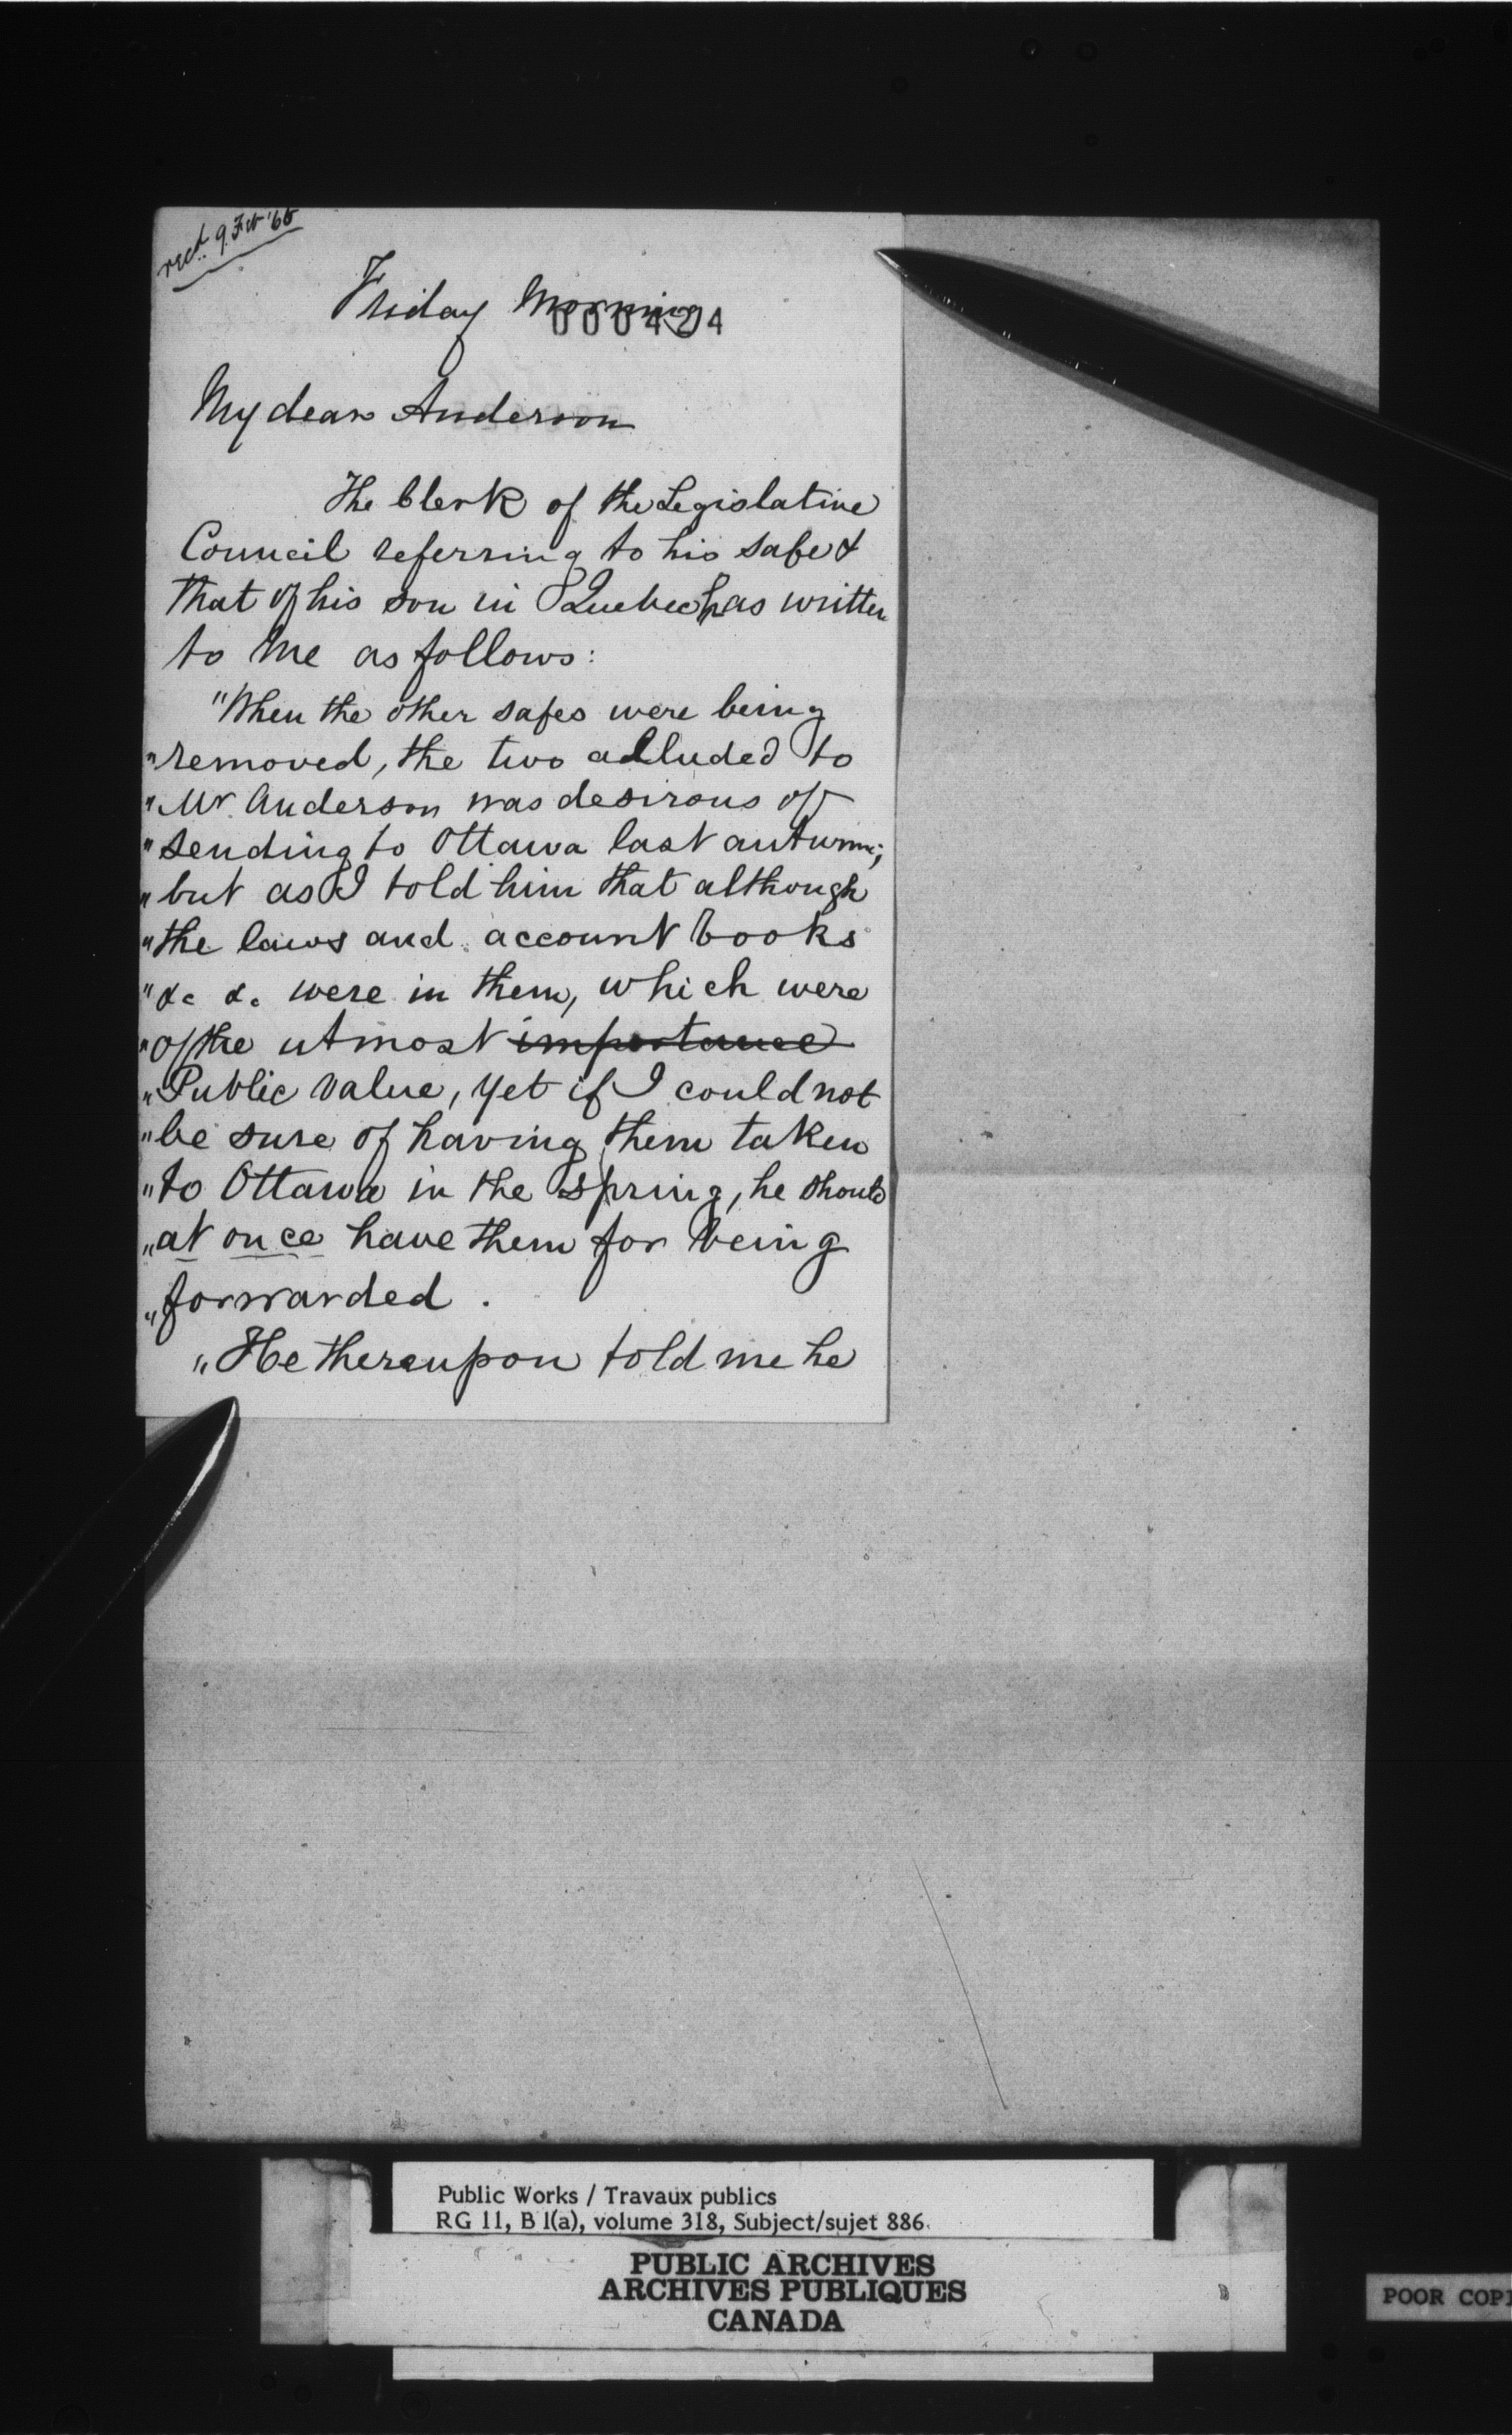 recd. 9 Feb '66
Friday Morning
000424
My dear Anderson
The Clerk of the Legislative
Council referring to his safe &
that of his son in Quebec has written
to me as follows:
"When the other safes were being
"removed, the two alluded to
"Mr. Anderson was desirous of
"sending to Ottawa last autumn;
"but as I told him that although
"the laws and account books
"&c &c were in them, which were
"of the utmost importance
"Public value, yet if I could not
"be sure of having them taken
"to Ottawa in the spring, he should
"at once have them for being
"forwarded.
"He thereupon told me he
Public Works / Travaux publics
RG 11, B 1(a), volume 318, Subject/sujet 886.
PUBLIC ARCHIVES
ARCHIVES PUBLIQUES
CANADA
POOR COPI